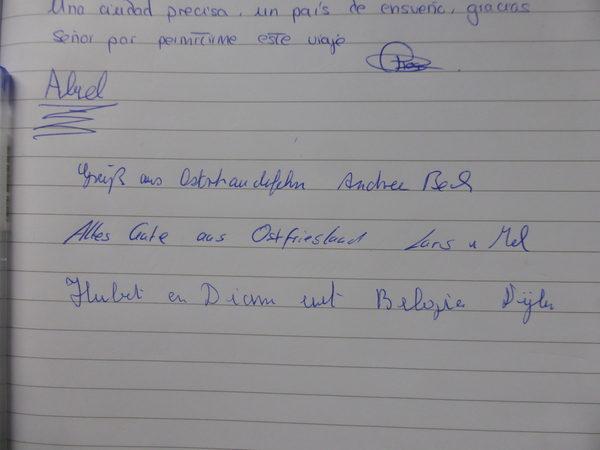 Una ciudad precisa, un país de ensueño, gracias
Señor por permitirme este viaje
Abel
Gruß aus Ostrhauderfehn Andree
Alles Gute aus Ostfriesland Lars u Mel
Hubet en Diana uit Belgie